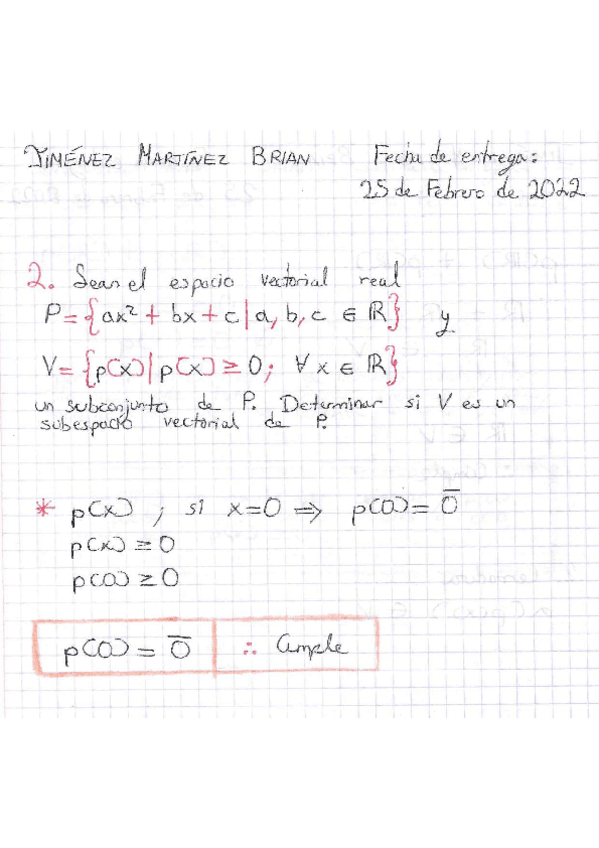 JIMÉNEZ MARTÍNEZ BRIAN Fecha de entrega:
25 de Febrero de 2022
2. Sean el espacio vectorial real
P={ax²+bx+c|a,b,c ∈ ℝ} y
V={p(x)|p(x)≥0; ∀x∈ℝ}
un subconjunto de P. Determinar si V es un
subespacio vectorial de P.
* p(x) ; si x=0 ⇒ p(0)= 0̅
p(x)≥0
p(0)≥0
p(0)= 0̅ ∴ Cumple